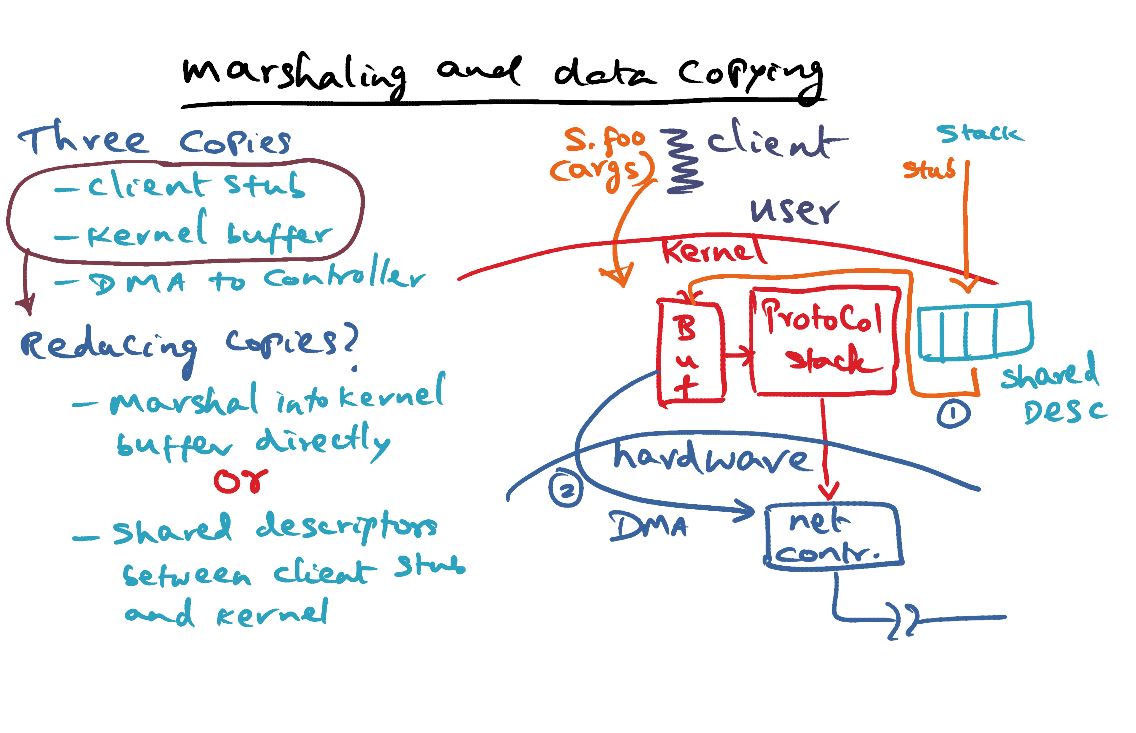 marshaling and data copying
Three copies
- client stub
- kernel buffer
- DMA to controller
Reducing copies?
- Marshal into kernel
buffer directly
or
- Shared descriptors
between client stub
and kernel
S.foo
(args)
client
user
Stack
stub
Kernel
Buf
Protocol
stack
shared
DESC
①
hardware
②
DMA
net
contr.